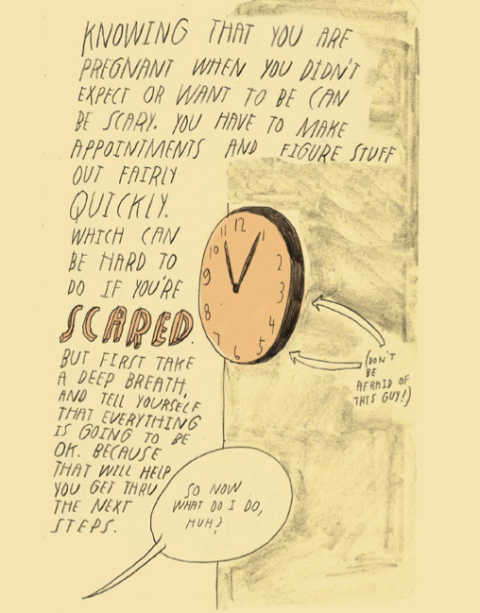 KNOWING THAT YOU ARE
PREGNANT WHEN YOU DIDN'T
EXPECT OR WANT TO BE CAN
BE SCARY. YOU HAVE TO MAKE
APPOINTMENTS AND FIGURE STUFF
OUT FAIRLY
QUICKLY.
WHICH CAN
BE HARD TO
DO IF YOU'RE
SCARED.
BUT FIRST TAKE
A DEEP BREATH,
AND TELL YOURSELF
THAT EVERYTHING
IS GOING TO BE
OK. BECAUSE
THAT WILL HELP
YOU GET THRU
THE NEXT
STEPS.
11 12 1
10 2
9 3
8 4
7 6 5
(DON'T
BE
AFRAID OF
THIS GUY!)
SO NOW
WHAT DO I DO,
HUH?